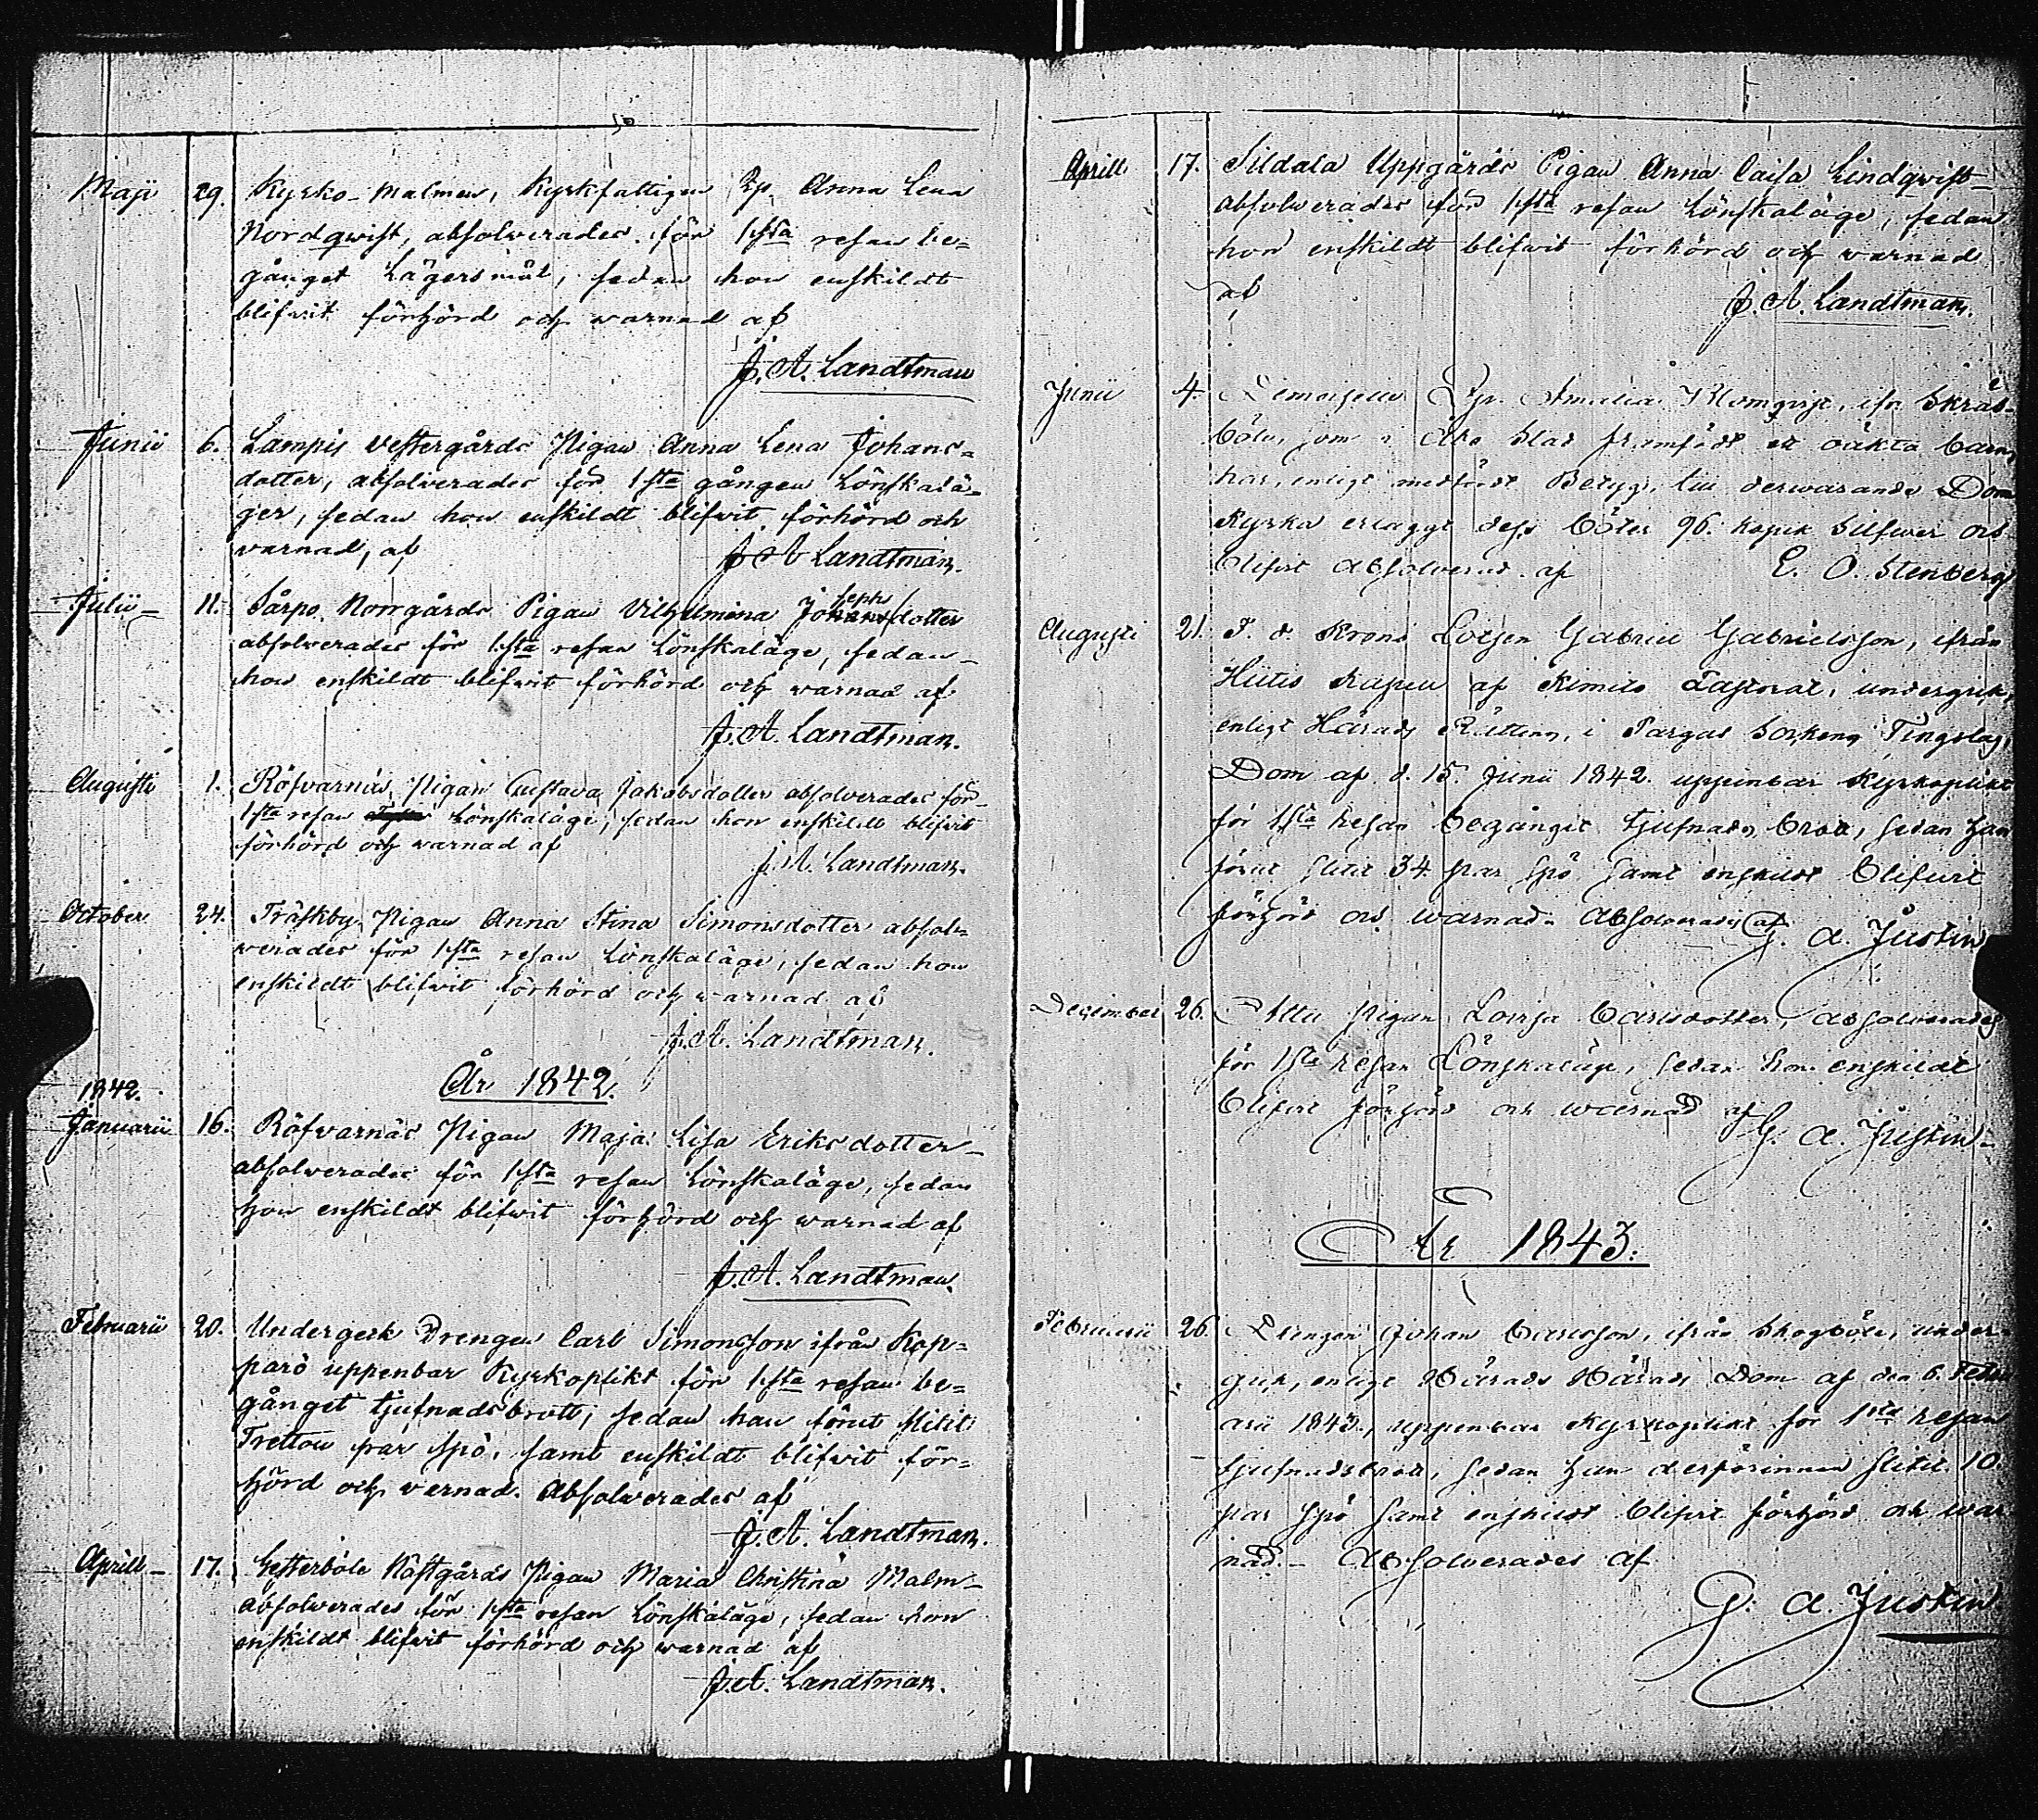 Maji 29. Kyrko-Malmen, Kyrkfattigen Ep. Anna Lena
Nordqwist, absolverades för 1sta resan be=
gånget Lägersmål, sedan hon enskildt
blifwit förhörd och warnad af
J. A. Landtman
Junii 6. Lampis Vestergårds Pigan Anna Lena Johans=
dotter, absolverades för 1sta gången Lönskalä=
ger, sedan hon enskildt blifwit förhörd och
varnad, af J A Landtman.
Julii 11. Sårpo Norrgårds Pigan Vilhelmina Josephsdotter
absolverades för 1sta resan Lönskaläge, sedan
hon enskildt blifwit förhörd och warnad af
J. A. Landtman.
Augusti 1. Röfvarnäs Pigan Gustava Jakobsdotter absolverades för
1sta resan Lönskaläge, sedan hon enskildt blifwit
förhörd och warnad af
J. A. Landtman.
October 24. Träskby Pigan Anna Stina Simonsdotter absol=
verades för 1sta resan Lönskaläge, sedan hon
enskildt blifwit förhörd och warnad af
J. A. Landtman.
År 1842.
1842.
Januarii 16. Röfvarnäs Pigan Maja Lisa Eriksdotter
absolverades för 1sta resan Lönskaläge, sedan
hon enskildt blifwit förhörd och warnad af
J. A. Landtman.
Februarii 20. Undergick Drengen Carl Simonsson ifrån Kop=
parö uppenbar Kyrkoplikt för 1sta resan be=
gånget tjufnadsbrott, sedan han förut slitit
Tretton par spö, samt enskildt blifwit för=
hörd och varnad. Absolverades af
J. A. Landtman.
Aprill 17. Gesterböle Västgårds Pigan Maria Christina Malm
absolverades för 1sta resan Lönskaläge, sedan hon
enskildt blifwit förhörd och warnad af
J. A. Landtman.
Aprill 17. Sildala Uppgårds Pigan Anna Caisa Lindqwist
absolverades för 1sta resan Lönskaläge, sedan
hon enskildt blifwit förhörd och warnad
af J. A. Landtman.
Junii 4. Demoiselle Amalia Blomqvist, ifr. Skräb-
böle, som i Åbo Stad framfödt ett oäkta barn,
har, enligt medfördt Betyg, till derwarande Dom
Kyrka erlaggt dess böter 96. kopek Silfwer och
blifvit absolverad af E. O. Stenberg
Augusti 21. F. d. Krono Lotsen Gabriel Gabrielsson, ifrån
Hiitis Kapell af Kimito Pastorat, undergick,
enligt Härads Rättens, i Pargas Sockens Tingslag,
Dom af d. 15. Junii 1842. uppenbar Kyrkoplikt
för 1sta Resan begånget tjufnads brott, sedan han
förut slitit 34 par spö samt enskildt blifwit
förhörd och warnad. Absolverades af G. A. Justin
December 26. Pigan Lovisa Carlsdotter, absolverades
för 1sta resan Lönskaläge, sedan hon enskildt
blifvit förhörd och warnad af
G. A. Justin
År 1843.
Februarii 26. Drengen Johan Carlsson, ifrån Skogböle, under-
gick, enligt Härads Dom af den 6. Febru
arii 1843, uppenbar Kyrkoplikt för 1sta resan
tjufnadsbrott, sedan han derförinnan slitit 10.
par spö samt enskildt blifvit förhörd och war
nad. Absolverades af
G. A. Justin